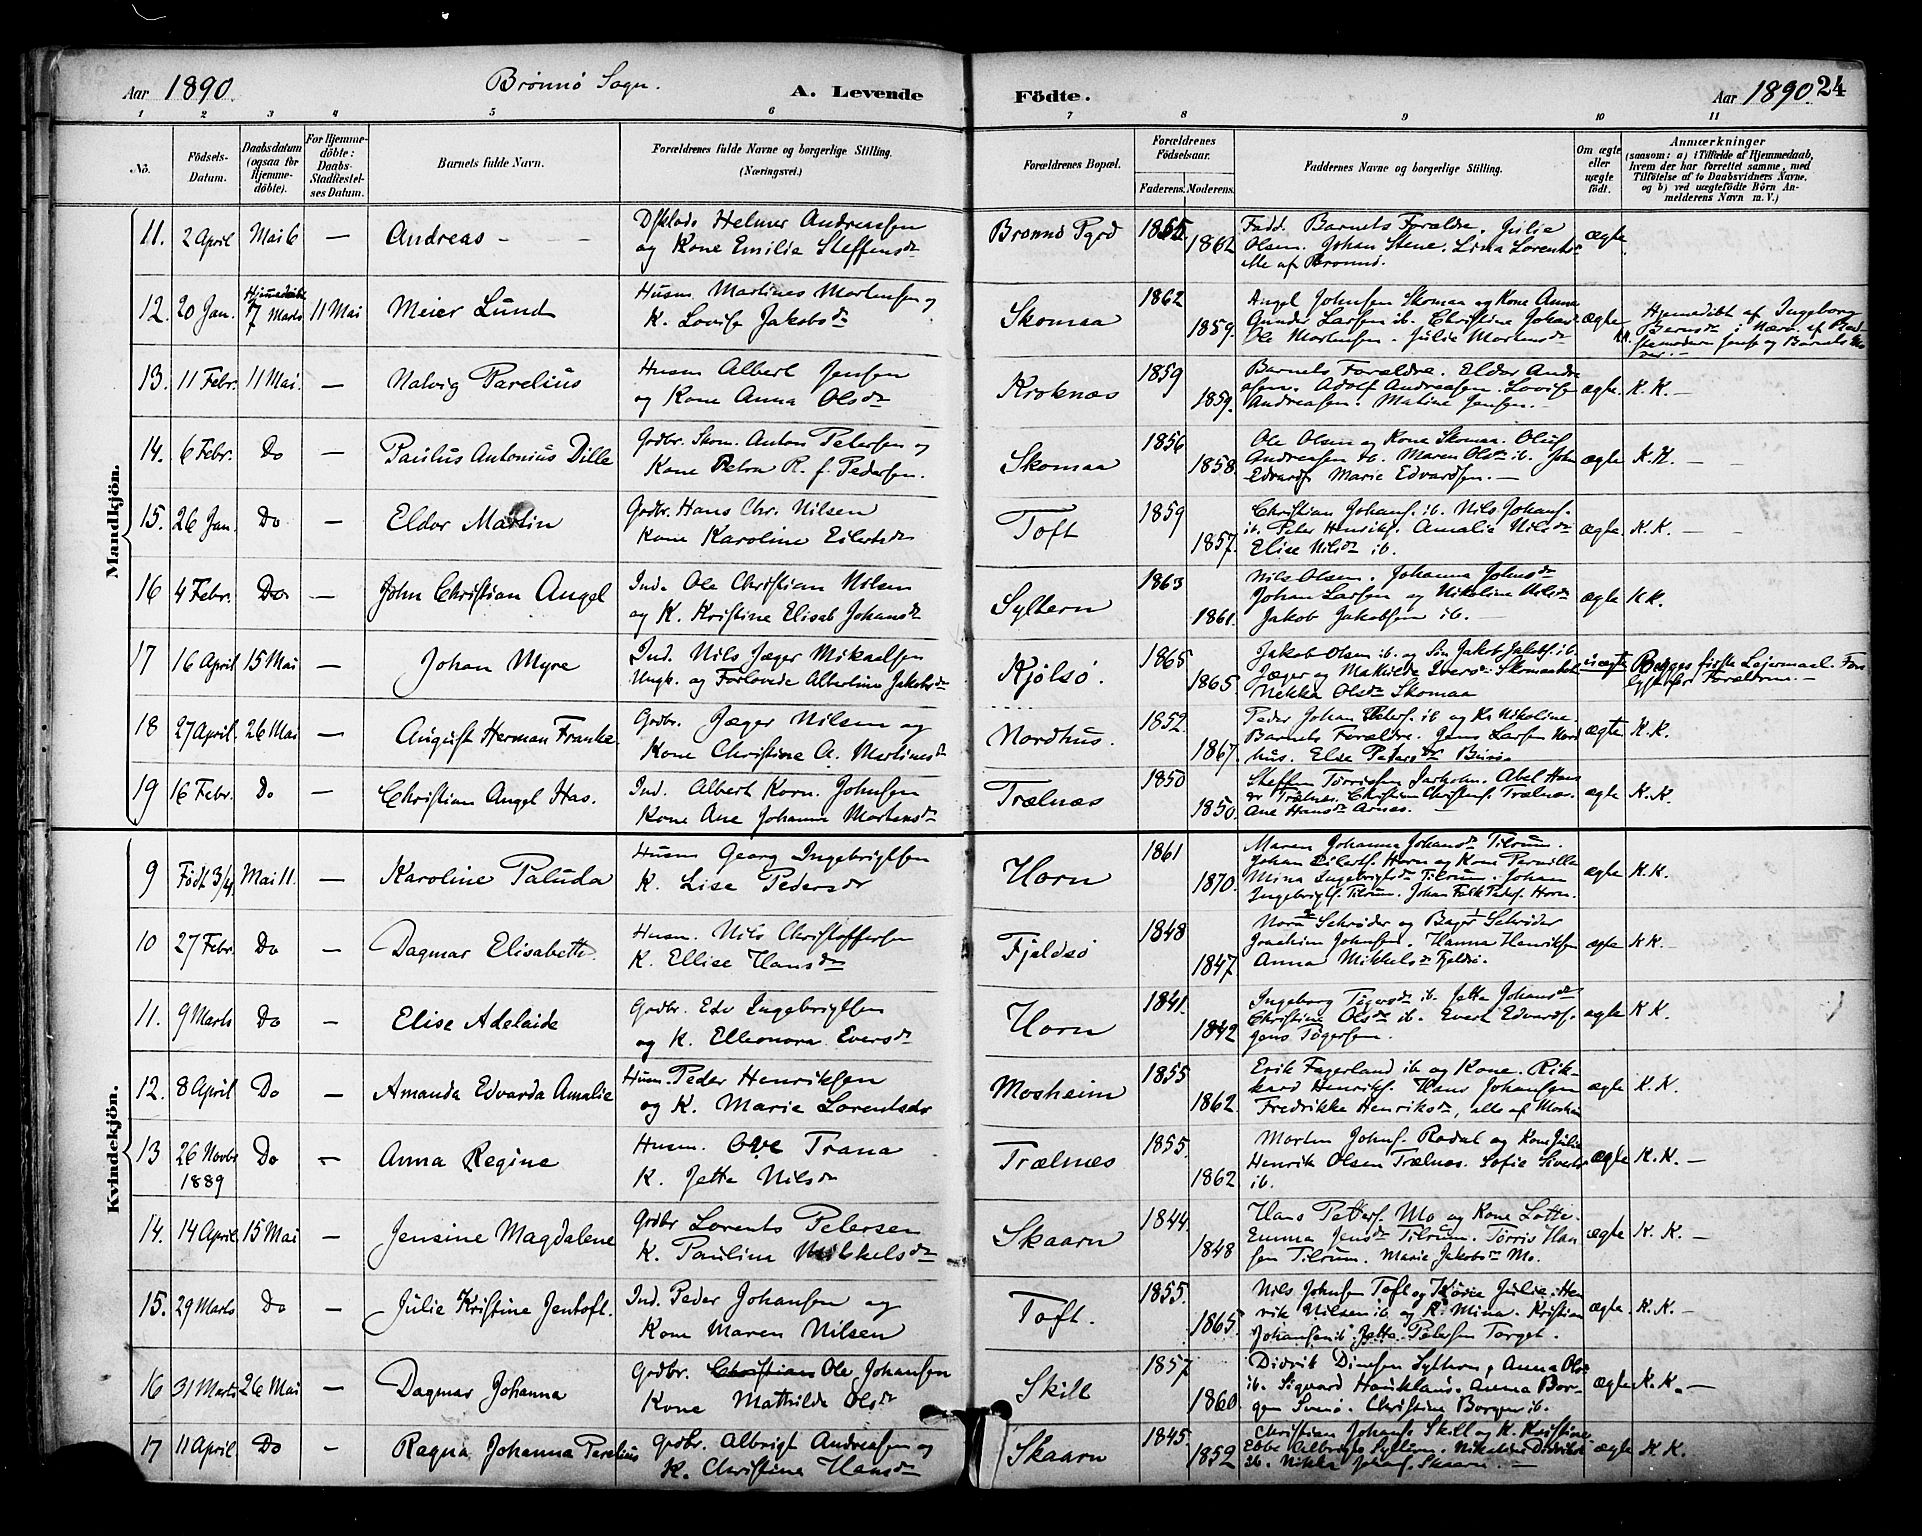 Aar 1890. Brønnø Sogn. A. Levende
Födte. Aar 1890. 24
1 2 3 4 5 6 7 8 9 10 11
No. Födsels-Datum. Daabsdatum (ogsaa for Hjemmedöbte). For Hjemmedöbte: Daabs-Stadfestelses Datum. Barnets fulde Navn. Forældrenes fulde Navne og borgerlige Stilling. (Næringsvei.)
Forældrenes Bopæl. Forældrenes Födselsaar. Faderens. Moderens. Faddernes Navne og borgerlige Stilling. Om ægte eller uægte født. Anmærkninger (saasom: a) i Tilfælde af Hjemmedaab, hvem der har forrettet samme, med Tilföielse af to Daabsvidners Navne, og b) ved uægtefödte Börn Anmelderens Navn m. V.)
Mandkjön.
11. 2 April Mai 6 — Andreas - - Helmer Andreassen
og Kone Emilie Steffensdr
Brønnø Pgrd 1865 1862 Fadd. Barnets Forældre. Julie
Olsen. Johan Stene. Lina Lorents-
alle af Brønnø. ægte
12. 20 Jan. Hjemedøbt 7 Marts 11 Mai Meier Lund Husm. Martines Mortensen og
K. Lovise Jakobsdr
Skomaa 1862 1859. Angel Johnsen Skomaa og Kone Anna
Gunder Larsen ib. Christine Johans
Ole Mortensen. Julie Mortensdr ægte
Hjemedøbt af Ingeborg
Berntsdr i Nærv. af Bed
stemoderen og Barnets Mo
der.—
13. 11 Febr. 11 Mai. — Nalvig Parelius Husm Albert Jensen
og Kone Anna Olsdr
Kroknæs 1859 1859. Barnets Forældre. Eldor Andre
asen. Adolf Andreasen. Lovise
Andreassen. Matine Jensen.— ægte. K. K. —
14. 6 Febr. Do — Paulus Antonius Dille Grdbr. Skom. Anton Petersen og
Kone Petra R. f. Pedersen.
Skomaa 1856 1858. Ole Olsen og Kone Skomaa. Oluf
Andreasen ib. Maren Olsdr ib. John
Edvards Marie Edvardsen.— ægte K. K.
15. 26 Jan. Do — Eldor Martin Grdbr. Hans Chr. Nilsen
Kone Karoline Eilertsdr
Toft 1859 1857. Christian Johans. ib. Nils Johans.
ib. Peter Henriks. Amalie Nilsdr
Elise Nilsdr ib. ægte. K. K. —
16 4 Febr. Do. — John Christian Angel Ind. Ole Christian Nilsen
og K. Kristine Elisab Johansdr
Syltern 1863 1861. Nils Olsen. Johanna Johnsdr
Johan Larsen og Nikoline Nilsdr
Jakob Jakobsen ib. ægte K K.
17 16 April 15 Mai — Johan Myre Ind. Nils Jæger Mikaelsen
Ungk. og Forlovede Albertine Jakobsdr
Kjølsø. 1865 1865 Jakob Olsen ib. og Søn Jakob Jakobs. ib.
Jæger og Mathilde Iversdr
Nekka Olsdr Skomaa uægte Begges første Leiermaal.
18 27 April. 26 Mai — August Herman Franke Grdbr. Jæger Nilsen og
Kone Christine A. Martinesdr
Nordhus. 1852. 1867. Peder Johan Peters. ib og Kr Nikoline.
Barnets Forældre. Jens Larsen Nord
hus. Else Petersdr ægte K. K.
19 16 Febr. Do — Christian Angel Has. Ind. Albert Korn. Johnsen
Kone Ane Johanna Mortensdr
Trælnæs 1850 1850. Steffen Torrissen Abel Hans
dr Trælnæs. Christian Christens. Trælnæs.
Ane Hansdr Arnæs. ægte K. K.
Kvindekjön.
9 Født 3/4 Mai 11. — Karoline Paluda Husm Georg Ingebrigtsen
K. Lise Pedersdr
Horn 1861 1870. Maren Johanna Johansdr Tilrum.
Johan Eilerts. Horn og Kone Pernille
Mina Ingebrigtsdr Tilrum. Johan
Ingebrigts. Tilrum. Johan Falk Peders. Horn. ægte K. K.
10 27 Febr. Do — Dagmar Elisabeth. Husm. Nils Christoffersen
K. Ellise Hansdr
Fjeldsø 1848 1847 Nora Schrøder og Bager Schrøder
Joachim Johnsen. Hanna Henriksen
Anna Mikkelsdr Fjeldsø. ægte K K. —
11. 9 Marts Do — Elise Adelaide Grdbr. Edv Ingebrigtsen
og K. Elleonora Eversdr
Horn 1841. 1842 Ingeborg Tøgersdr ib. Jetta Johansdr
Christine Olsdr ib. Evert Edvards.
Jens Tøgersen. ægte K K.
12. 8 April Do — Amanda Edvarda Amalie Husm. Peder Henriksen
og K. Marie Lorentsdr
Mosheim 1855 1862. Erik Fagerland ib og Kone. Rik-
kard Henriks. Hans Johansen
Fredrikke Henriksdr, alle af Moshm ægte K. K.
13 26 Novbr 1889 Do — Anna Regine Husm. Ove Trana
K. Jetta Nilsdr
Trælnæs 1855. 1862 Morten Johns. Rødal og Kone Julie
Henrik Olsen Trælnæs. Sofie Siverts
ib. ægte K. K. —
14. 14 April 15 Mai — Jensine Magdalene Grdbr Lorents Petersen
K. Pauline Mikkelsdr
Skaarn 1844. 1848 Hans Petters. Mo og Kone Lotte.
Emma Jensdr Tilrum. Tørris Han
sen Tilrum. Marie Jakobsdr Mo. ægte K. K. —
15. 29 Marts Do — Julie Kristine Jentoft. Ind. Peder Johansen og
Kone Maren Nilsen
Toft. 1855. 1865. Nils Johnsen Toft og Julie. Hen
rik Nilsen ib og K. Mina. Kristian
Johansen ib. Jetta Petersen Torget. ægte K. K. —
16 31 Marts 26 Mai — Dagmar Johanna Grdbr. Christian Ole Johansen
Kone Mathilde Olsdr
Skill 1857. 1860. Didrik Dinesen Syltern, Anna Ols
ib. Sigvard Anna Bor-
gen Christine Borgen ib. ægte K. K. —
17 11 April Do — Ragna Johanna Parelius Grdbr. Albrigt Andreasen og
K. Christine Hansdr
Skaarn 1845. 1852 Christian Johans. Skill og K. Kristine
Ebbe Albrigts Syltern. Nikoline Didriks
ib. Nikka Johns. Skaarn. — ægte K K.